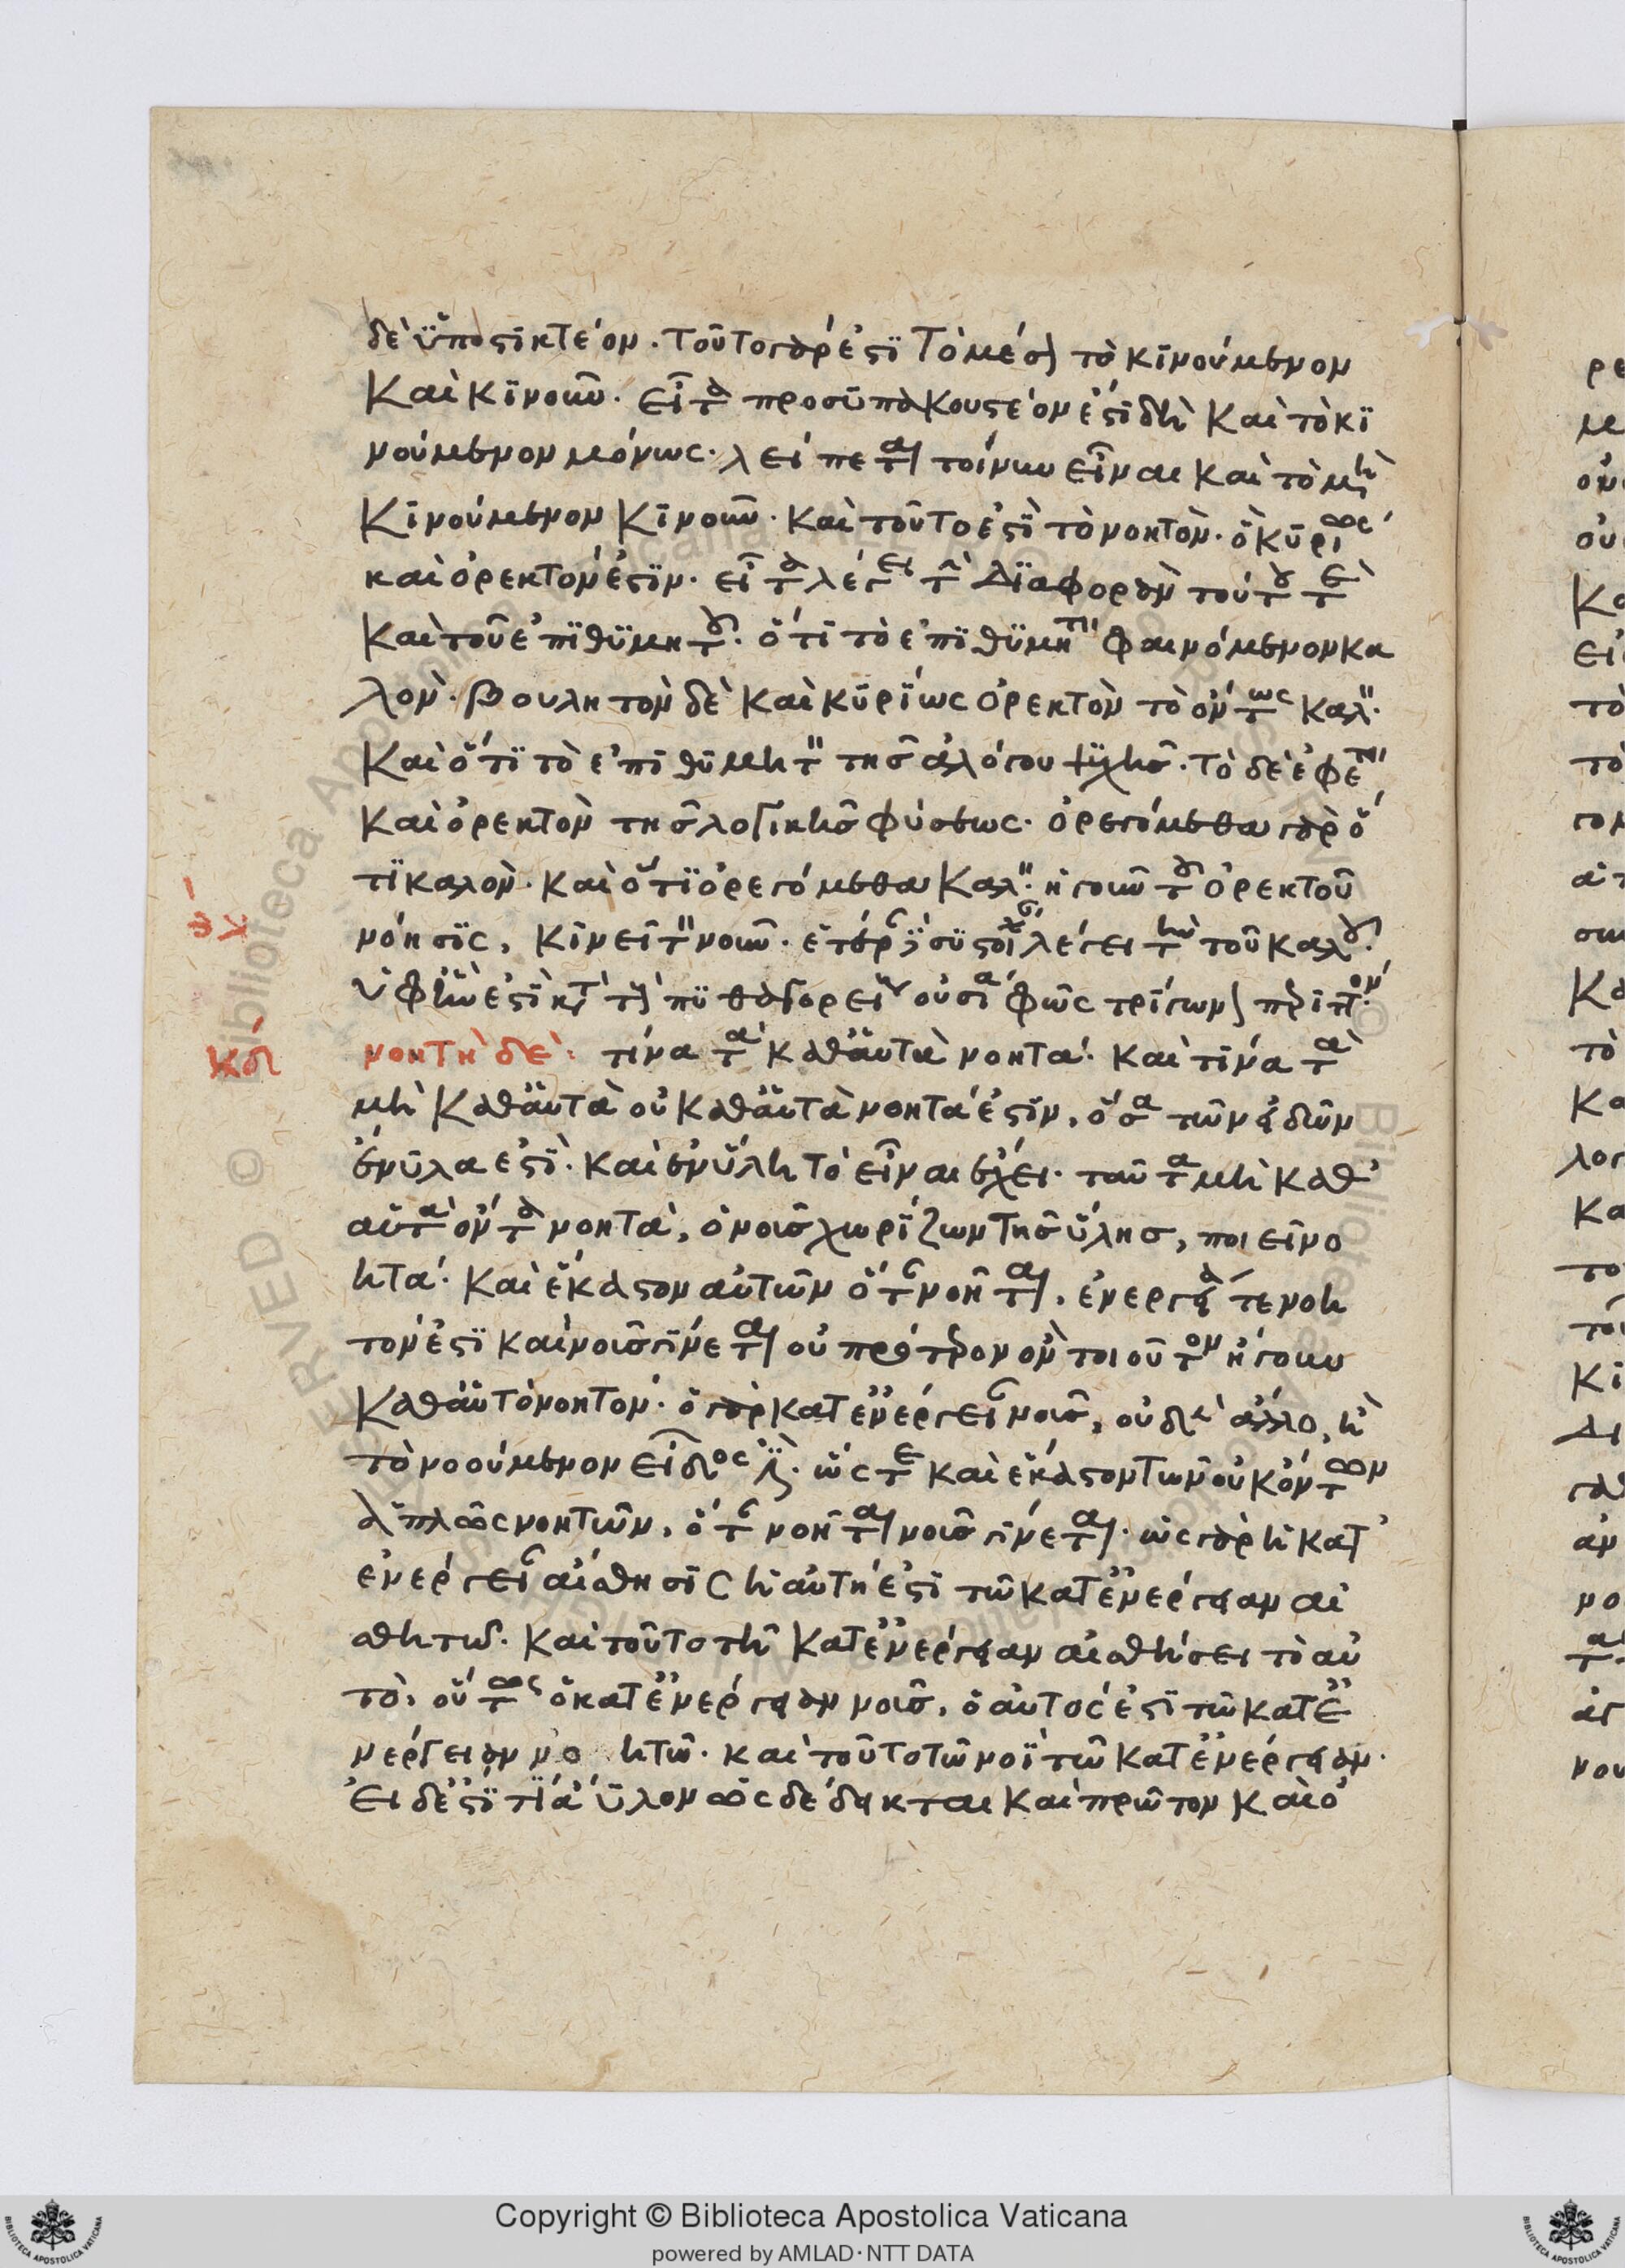 δὲ ὑποστικτέον. τοῦτο γάρ ἐστι τὸ μέσον τὸ κινούμενον
καὶ κινοῦν. εἶτα προσυπακουστέον ἔστι δὴ καὶ τὸ κι
νούμενον μόνως. λείπεται τοίνυν εἶναι καὶ τὸ μὴ
κινούμενον κινοῦν. καὶ τοῦτό ἐστι τὸ νοητὸν. ὃ κυρίως
καὶ ὀρεκτόν ἐστιν. εἶτα λέγει τὴν διαφορὰν τούτου τε
καὶ τοῦ ἐπιθυμητοῦ. ὅτι τὸ ἐπιθυμητὸν φαινόμενον κα
λὸν. βουλητὸν δὲ καὶ κυρίως ὀρεκτὸν τὸ ὄντως καλὸν.
καὶ ὅτι τὸ ἐπιθυμητὸν τῆς ἀλόγου ψυχῆς. τὸ δὲ ἐφετὸν
καὶ ὀρεκτὸν τῆς λογικῆς φύσεως. ὀρεγόμεθα γὰρ ὅ
τι καλὸν. καὶ οὔ τι ὀρεγόμεθα καλὸν. ἡ γοῦν τοῦ ὀρεκτοῦ
νόησις, κινεῖ τὸν νοῦν. ἑτέρα συστοιχία λέγει τὴν τοῦ καλοῦ.
ὑφ' ἥν ἐστι κατὰ τοὺς πυθαγορείους οὐσία φῶς τρίγωνον περιττόν.
νοητὴ δὲ: τίνα τὰ καθ' αὑτὰ νοητά. καὶ τίνα τὰ
μὴ καθ' αὑτὰ οὐ καθ' αὑτὰ νοητά ἐστιν, ὅσα τῶν εἰδῶν
ἔνυλα ἐστὶ. καὶ ἐν ὕλη τὸ εἶναι ἔχει. ταῦτα μὴ καθ'
αὑτὰ ὄντα νοητὰ, ὁ νοῦς χωρίζων τῆς ὕλης, ποιεῖ νο
ητά. καὶ ἕκαστον αὐτῶν ὅτε νοῆται, ἐνεργείᾳ τε νοη
τόν ἐστι καὶ νοῦς γίνεται οὐ πρότερον ὂν τοιοῦτον ἤγουν
καθ' αὑτὸ νοητόν. ὁ γὰρ κατ' ἐνέργειαν νοῦς, οὐδὲν ἄλλο, ἢ
τὸ νοούμενον εἶδος ἐστὶ. ὥστε καὶ ἕκαστον τῶν οὐκ ὄντων
ἁπλῶς νοητῶν, ὅτε νοῆται νοῦς γίνεται. ὡς γὰρ ἡ κατ'
ἐνέργειαν αἴσθησις ἡ αὐτή ἐστι τῷ κατ' ἐνέργειαν αἰ
σθητῷ. καὶ τοῦτο τῇ κατ' ἐνέργειαν αἰσθήσει τὸ αὐ
τὸ, οὕτως ὁ κατ' ἐνέργειαν νοῦς, ὁ αὐτός ἐστι τῷ κατ' ἐ
νέργειαν νοητῷ. καὶ τοῦτο τῷ νοΐ τῷ κατ' ἐνέργειαν.
εἰ δέ ἐστί τι ἄϋλον ὡς δέδεικται καὶ πρῶτον καὶ ὁ
κδ
Copyright © Biblioteca Apostolica Vaticana
powered by AMLAD·NTT DATA